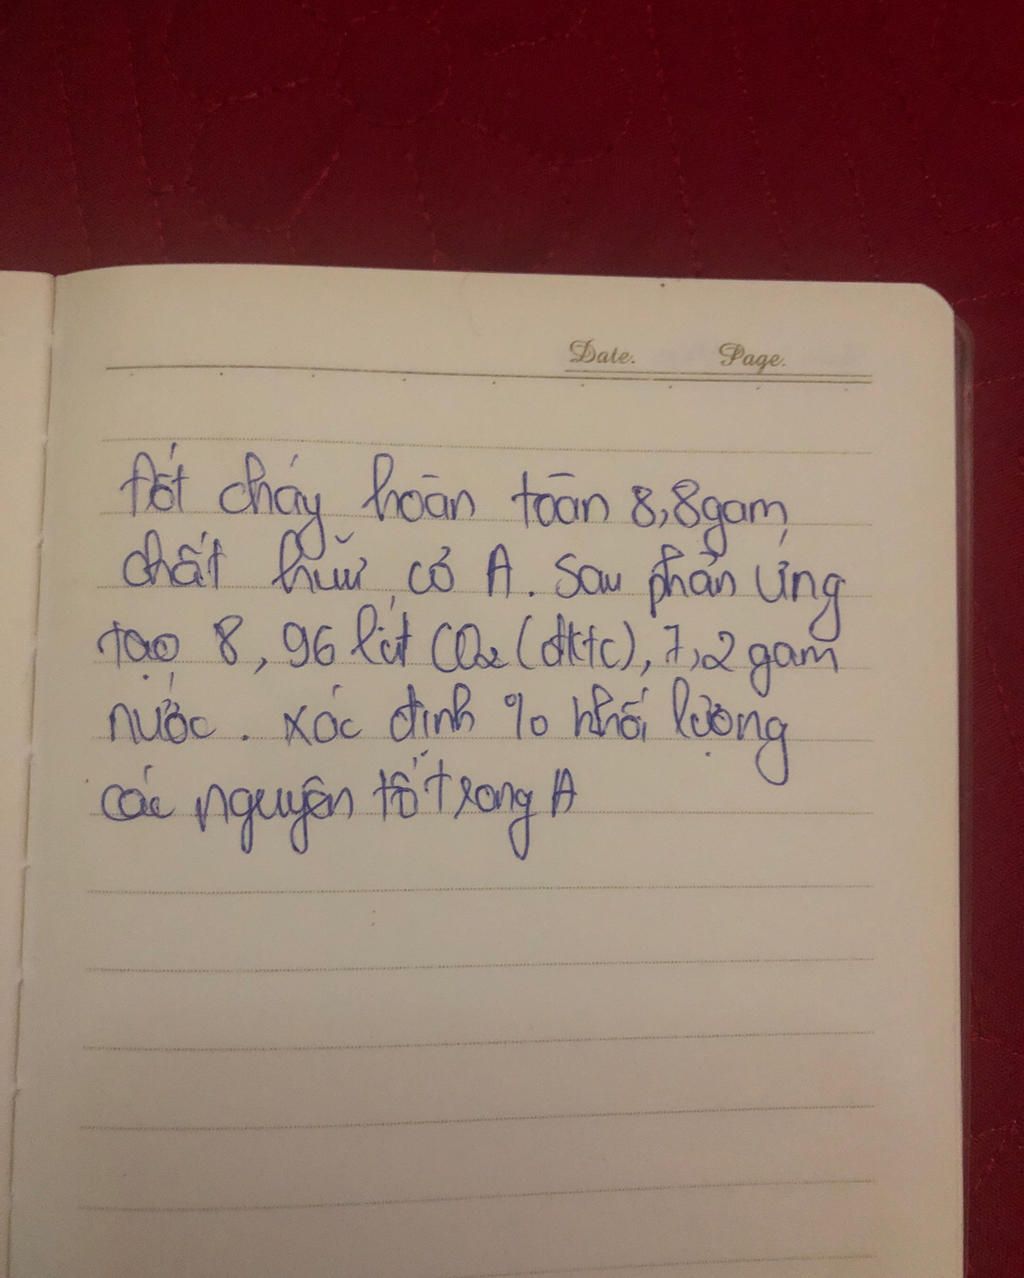 Date. Page.
Đốt cháy hoàn toàn 8,8gam
chất hữu cơ A. Sau phản ứng
tạo 8,96 lít CO₂ (đktc), 7,2 gam
nước. Xác định % khối lượng
các nguyên tố trong A